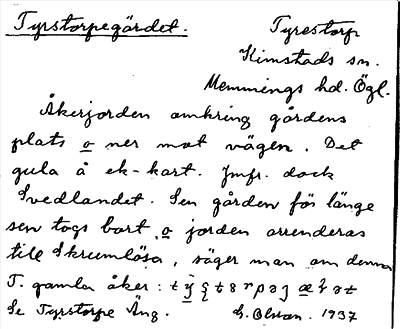 Tyrstorpegärdet. Tyrestorp
Kimstads sn.
Memmings hd. Ögl.
Åkerjorden omkring gårdens
plats o ner mot vägen. Det
gula å ek-kart. Jmfr. dock
Svedlandet. Sen gården för länge
sen togs bort o jorden arrenderas
till Skrumlösa, säger man om denna
T. gamla åker:
Se Tyrstorpe Äng. G. Olson. 1937